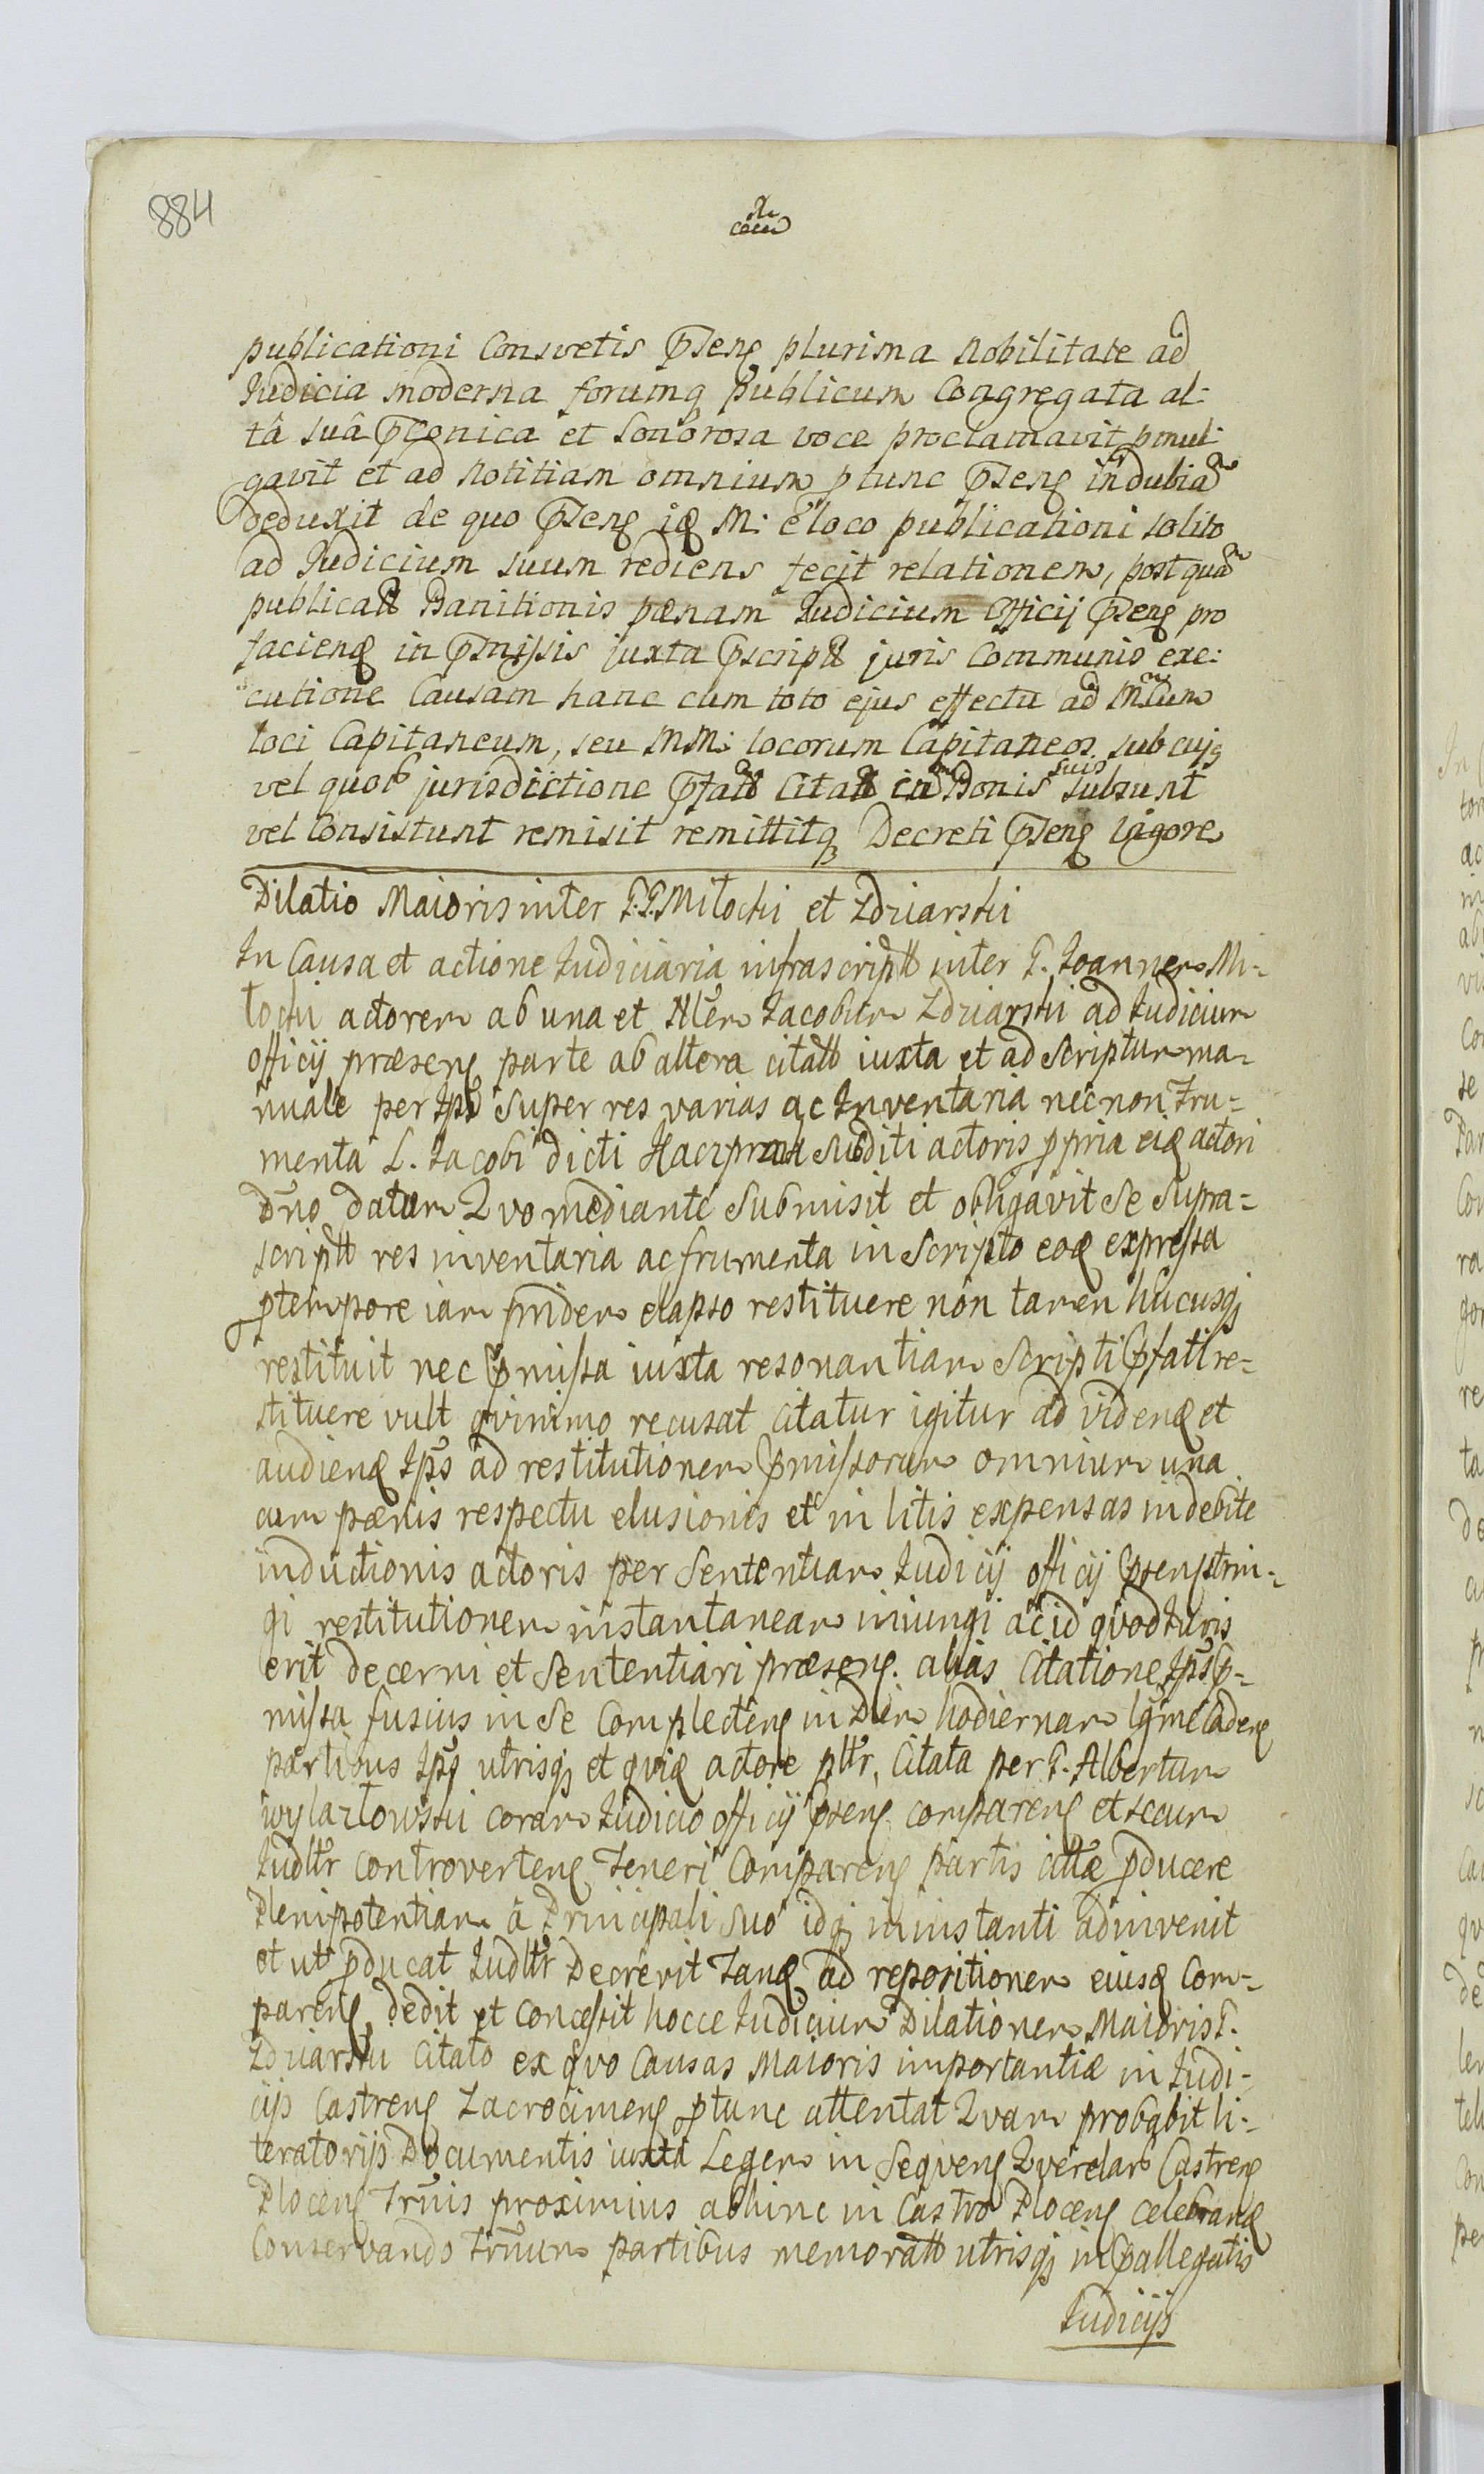 884
publicationi Consvetis Psenȩ plurima Nobilitate ad
Judicia moderna forumq publicum Congregata al:
tâ suâ et Sonorosa voce proclamavit pmul:
gavit et ad Notitiam omnium ptunc Psenȩ indubiã
deduxit de quo Psenȩ M: e loco publicationi solito
ad Judicium suum rediens fecit relationem, post quã
publicatt Banitionis pænam Judicium Officij Psenȩ pro
facienȩ in Pmissis juxta Pscriptt juris Communio exe:
cutione Causam hanc cum toto ejus effectu ad
loci Capitaneum, seu MM: locorum Capitaneos sub cujq
vel jurisdictione Pfatt Citatt Bonis suis subsunt
vel Consistunt remisit remittitq Decreti Psenȩ Vigore
Dilatio Maioris inter G.G. Milocki et Zdziarski
In Causa et actione Judiciaria infrascriptt inter G. Joannem Mi-
locki actorem ab una et Jacobum Zdziarski ad Judicium
officij præsenȩ parte ab altera citatt iuxta et ad Scriptum ma-
nuale per Ips Super res varias ac Inventaria nec non Fru-
menta L. Jacobi dicti Subditi actoris ppria actori
Dño datum Qvo mediante Submisit et obligavit Se Supra-
scriptt res inventaria ac frumenta in Scripto eoȩ expressa
ptempore iam pridem elapso restituere non tamen hucusq
restituit nec Pmissa iuxta resonantiam Scripti Pfatt re-
stituere vult qvinimo recusat Citatur igitur ad videnȩ et
audienȩ Ips̃ ad restitutionem Pmissorum omnium una
cum pænis respectu elusionis et in litis expensas indebite
inductionis actoris per Sententiam Judicij officij Psenȩ strin-
gi restitutionem instantaneam iniungi ac id qvod Juris
erit decerni et Sententiari præsenȩ. alias Citatione Ips̃ P-
missa fusius in Se Complectenȩ in Diem hodiernam lgme Cadenȩ
partibus Ips̃ utrisq et actore plr̃, Citata per G. Albertum
Wylazłowski coram Judicio officij Psenȩ comparenȩ et secum
Judltr controvertenȩ Teneri Comparenȩ partis cittæ pducere
Plenipotentiam â Principali Suo idq in instanti adinvenit
et ut pducat Judltr Decrevit Tanȩ ad repositionem eiusȩ Com-
parenȩ, dedit et Concessit hocce Judicium Dilationem Maioris G.
Zdziarski Citato ex qvo Causas Maioris importantiæ in Judi-
cijs Castrenȩ Zacrocimenȩ ptunc attentat Qvam probabit li-
teratorijs Documentis iuxta Legem in Seqvenȩ Qverelar Castrenȩ
Plocenȩ Trm̃is proximius abhinc in Castro Plocenȩ celebranȩ
Conservando Trm̃um partibus memoratt utrisq in Pallegatis
Judicijs